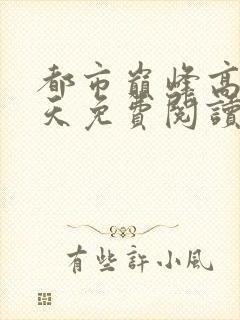 都市巔峰高
天免費閱讀
有些許小風